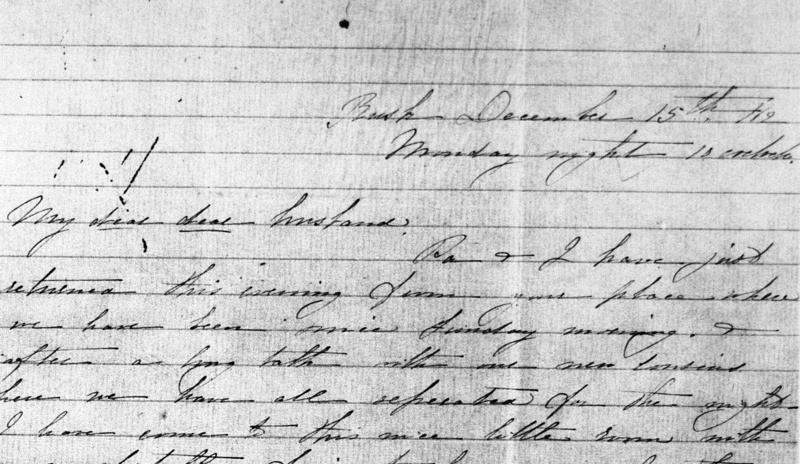 Rusk December 15th, 62
Monday night 12 oclock.
My dear dear husband.
Pa & I have just
returned this evening from your place where
we have been since Sunday morning. &
after a long talk with our new cousins
here we have all separated for the night
I have come to this nice little room with